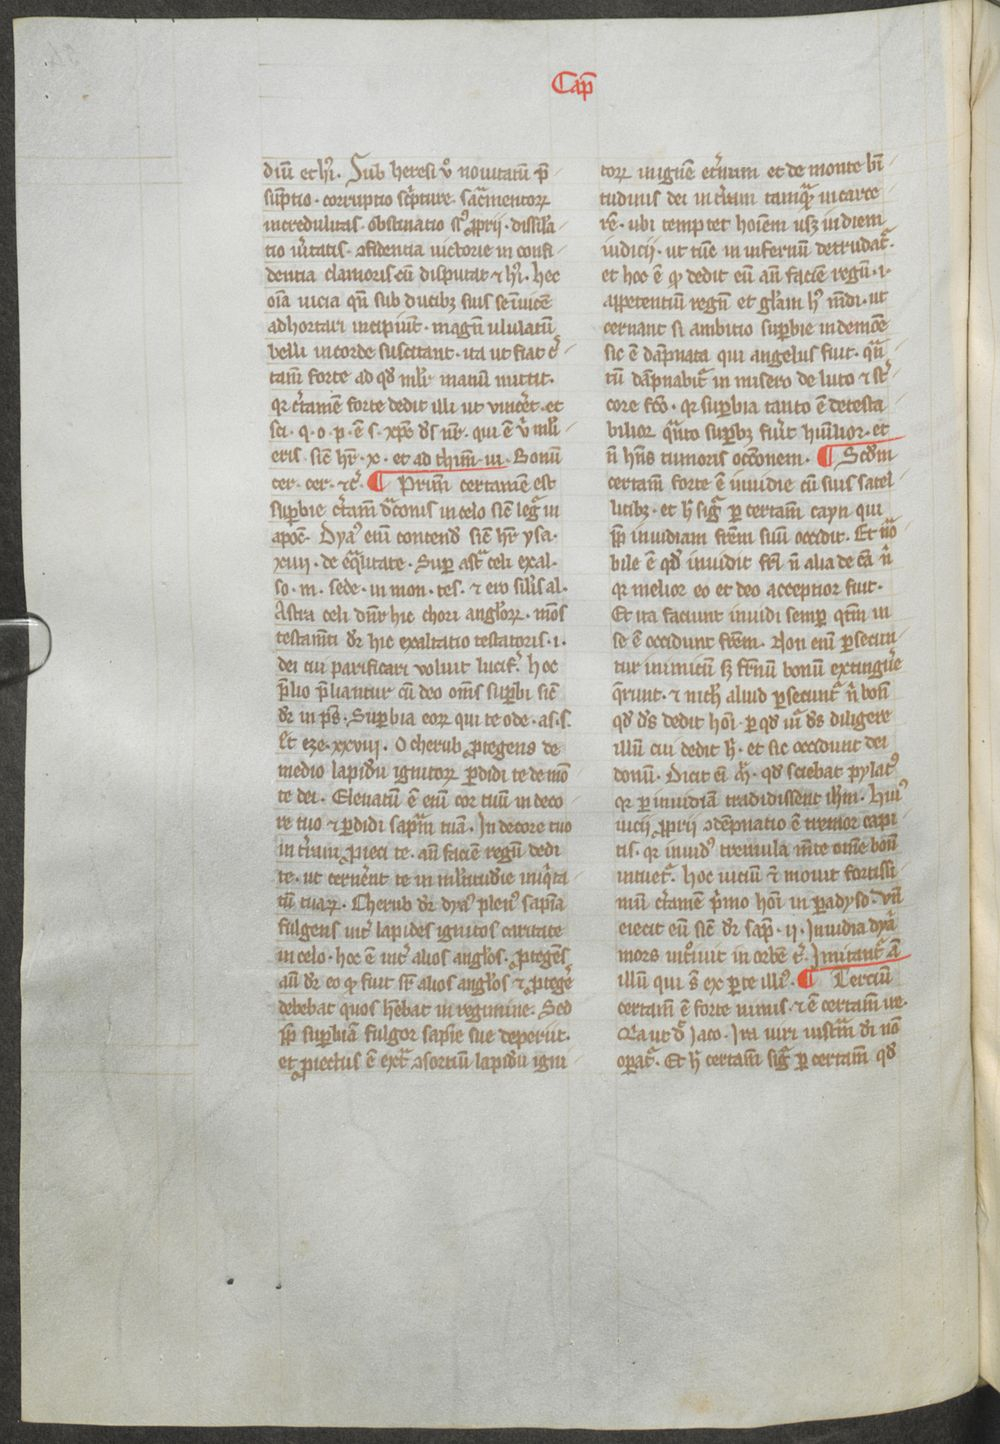 Cap̄
diū et hi᷒. Sub heresi v̊ nouitatū p̄
sūptio. corruptio sc̉pture. sac̃mentoꝝ
incredulitas. obstinatio sꝰ ꝓprij. dissila
tio ũitatis. ↄfidentia uictorie in confi
dentia clamoris cū disputat ⁊ hi᷒. hec
oīa uicia qn̄ sub ducibꝫ suis se inuicē
adhortari incipiūt. magn̄ ululatū
belli in corde suscitant. ita ut fiat c̉
tam̄ forte ad qd̛ ml̛r manū mittit.
qr c̉tamē forte dedit illi ut uinc̉et. et
sci. q. o. p. ē s. xp̄c dn̄s nr̄. qui ē v̉ ml̛i
eris. sic̄ hr̄. x. et ad thim̄. vi. Bonū
cer. cer. ⁊c̃. ¶ Prim̄ certamē est
suꝑbie c̉tam̄ d̃conis in celo sic̄ leg̃ in
apoc̄. Dyaꝰ eim̄ contend̛s sic̄ hr̄ ysa.
xiiii. de eq̃litate. Super ast̃ celi exal.
so. m. sede. in mon. tes. ⁊ ero sil̛is al.
Astra celi dn̄r hic chori angl̛oꝝ. mōs
testam̄ti dr̄ hic exaltatio testatoris. i.
dei cui parificari voluit lucif̉. hoc
p̄lio p̄liantur cū deo om̄s suꝑbi sic̄
dr̄ in ps̄. Suꝑbia eoꝝ qui te ode. as. s.
Et eze. xxviii. O cherub ꝓtegens de
medio lapidū ignitoꝝ ꝑdidi te de mō
te dei. Eleuatū ē eim̄ cor tuū in deco
re tuo ⁊ ꝑdidi sap̄iam tuā. In decore tuo
in t̉ram ꝓieci te. an̄ faciē regū dedi
te. ut cern̉ent te in ml̛titudīe iniq̉ta
tū tuaꝝ. Cherub dr̄ dyaꝰ plenꝰ sap̄ia
fulgens int̉ lapides ignitos caritate
in celo. hoc ē int̉ alios angl̛os. ꝓtegēs
aū dr̄ eo ꝙ fuit sr̄ alios angl̛os ⁊ ꝓteg̉e
debebat quos hēbat in regimine. Sed
ꝓp̄ suꝑbiā fulgor sapīe sue deperiit.
et ꝓiectus ē ext̃ ↄsortiū lapidū igni
toꝝ in ignē et̉num et de monte bt̄i
tudinis dei in t̉ram tamqᷓ in carce
rē. ubi temptet hoīem usqꝫ in diem
iudicij. ut tūc in infernū detrudat̃.
et hoc ē ꝙ dedit eū an̄ faciē regū. i.
appetentiū regn̄ et gl̛iam hꝰ mūdi. ut
cernant si ambitio suꝑbie in demōe
sic ē dāpnata qui angelus fuit. qn̄
tū dāpnabit̃ in misero de luto ⁊ st̉
core fc̄o. qr suꝑbia tanto ē detesta
bilior qn̄to suꝑbꝫ fu̓it hūilior. et
n̄ hn̄s tumoris occōnem. ¶ Scdm̄
certam̄ forte ē inuidie cū suis satel
litibꝫ. et h̄ sig̃ ꝑ certam̄ cayn qui
ꝓp̄ inuidiam fr̄em suū occidit. Et no̅
bile ē qd̛ inuidit fr̄i n̄ alia de cā n̉
qr melior eo et deo acceptior fuit.
Et ita faciunt inuidi semꝑ qtm̄ in
se ē occidunt fr̄em. Non eim̄ ꝑsecun
tur inimicū sꝫ fr̄nū bonū extingu̓e
q̓runt. ⁊ nich̄ aliud ꝑsecunt̃ n̉ bon̄
qd̛ ds̄ dedit hoī. ꝑ qd̛ iu̓ ds̄ diligere
illū cui dedit h̄. et sic occidunt dei
donū. Dicit eī m̄. qd̛ sciebat pylatꝰ
qr ꝑ inuidiā tradidissent ihm̄. Huiꝰ
uicij ꝓprij ↄdēpnatio ē tremor capi
tis. qr inuidꝰ tremula mēte om̄e bon̄
intuet̃. hoc uiciū ⁊ mouit fortissi
mū c̉tamē p̉mo hoī in ꝑadyso. vn̄
eiecit eū sic̄ dr̄ sap̄. ii. Inuidia dya
mors int̉oiuit in orbē t̉. Imitant̃ aū
illū qui sc̄ ex ꝑte illiꝰ. ¶ Terciū
certam̄ ē forte nimis. ⁊ ē certam̄ ire.
Qa ut d̃ Iaco. Ira uiri iusticiā dī nō
oꝑat̃. Et h̄ certam̄ sig̃ ꝑ certam̄ qd̛